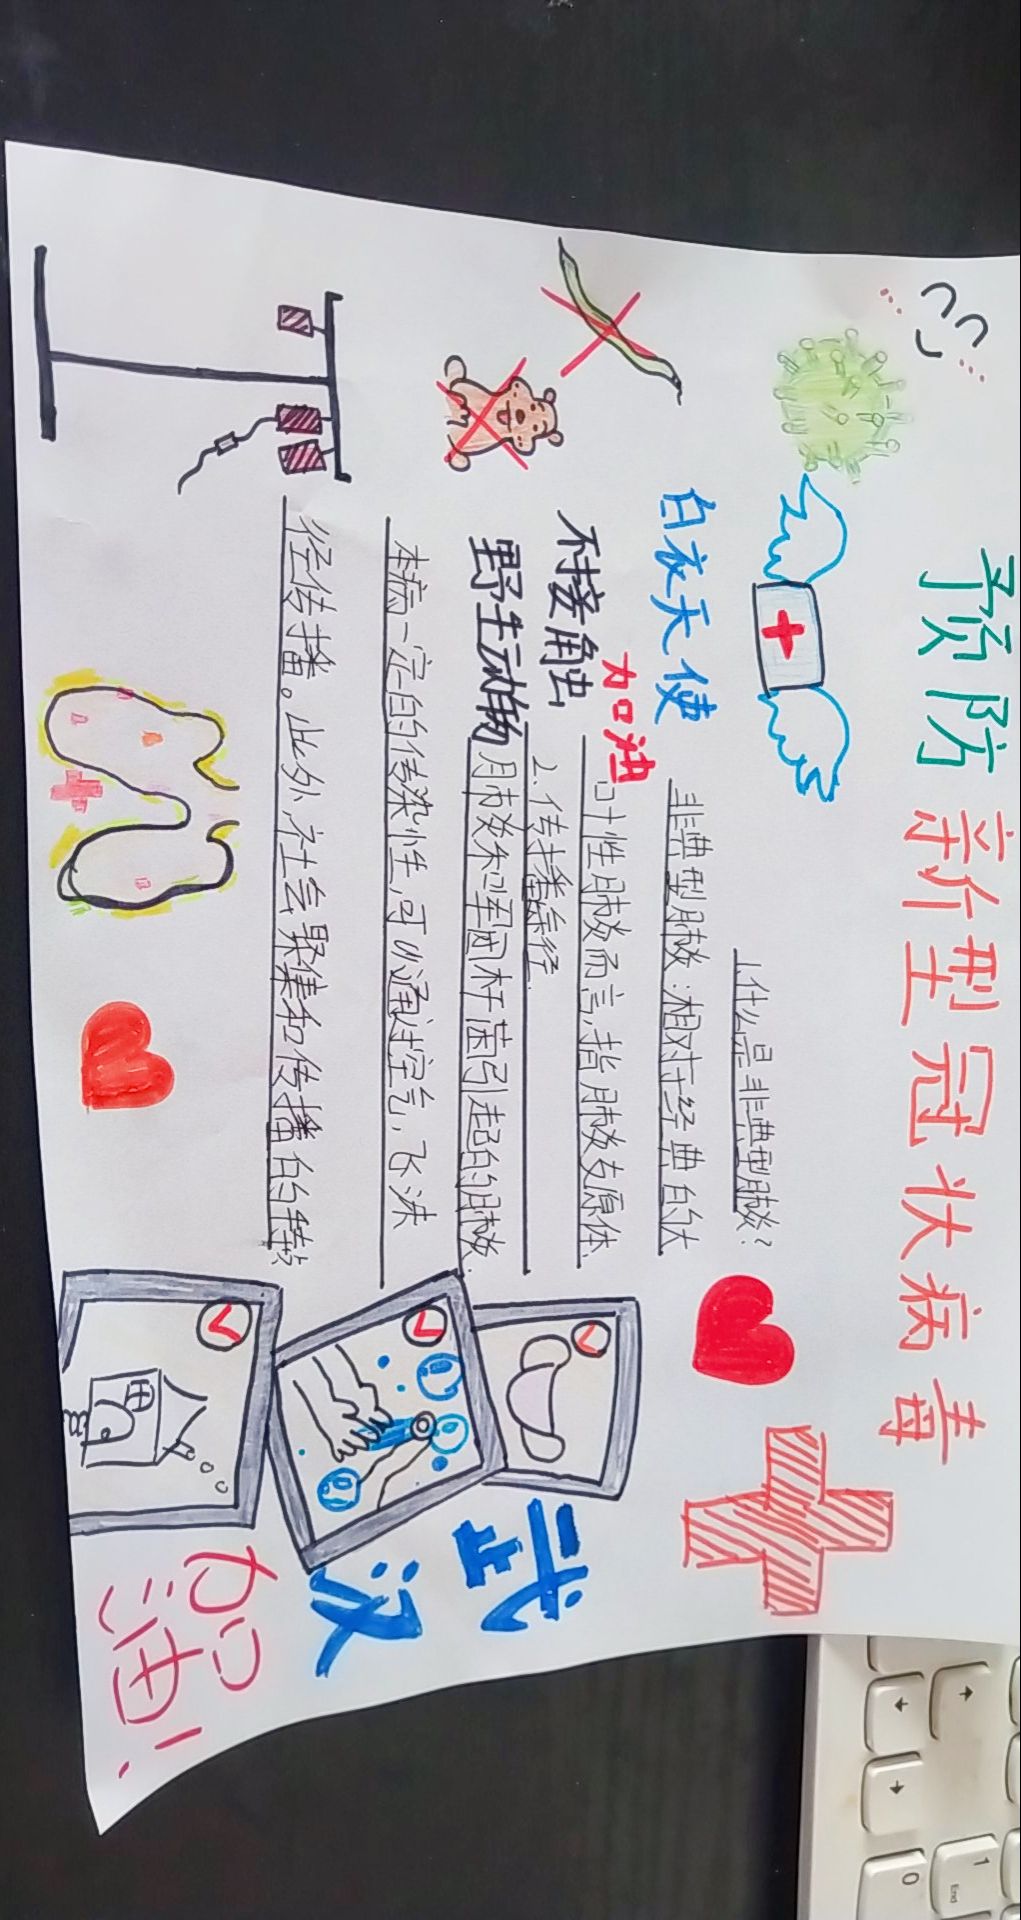 预防新型冠状病毒
白衣天使
加油
不接触
野生动物
1.什么是非典型肺炎?
非典型肺炎:相对于经典的大
叶性肺炎而言,指肺炎支原体.
2.传播途径.
肺炎和军团杆菌引起的肺炎.
本病一定的传染性,可以通过空气,飞沫
径传播。此外,社会聚集和传播的特
武汉
加油!
1
End
0